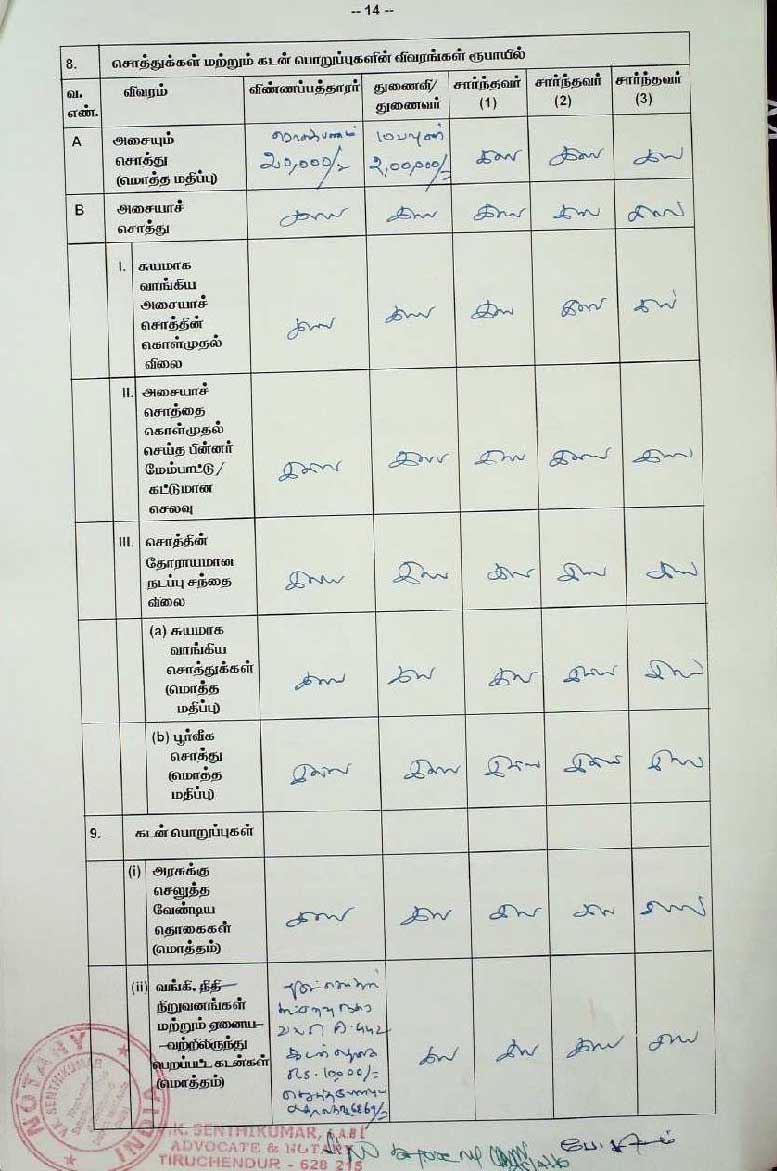 -- 14 --
8. சொத்துக்கள் மற்றும் கடன் பொறுப்புகளின் விவரங்கள் ரூபாயில்
வ. எண். விவரம் விண்ணப்பத்தாரர் துணைவி/ துணைவர் சார்ந்தவர் (1) சார்ந்தவர் (2) சார்ந்தவர் (3)
A அசையும்
சொத்து
(மொத்த மதிப்பு) 20,000/- 2,00,000/- இல்லை இல்லை இல்லை
B அசையாச்
சொத்து இல்லை இல்லை இல்லை இல்லை இல்லை
I. சுயமாக
வாங்கிய
அசையாச்
சொத்தின்
கொள்முதல்
விலை இல்லை இல்லை இல்லை இல்லை இல்லை
II. அசையாச்
சொத்தை
கொள்முதல்
செய்த பின்னர்
மேம்பாட்டு/
கட்டுமான
செலவு இல்லை இல்லை இல்லை இல்லை இல்லை
III. சொத்தின்
தோராயமான
நடப்பு சந்தை
விலை இல்லை இல்லை இல்லை இல்லை இல்லை
(a) சுயமாக
வாங்கிய
சொத்துக்கள்
(மொத்த
மதிப்பு) இல்லை இல்லை இல்லை இல்லை இல்லை
(b) பூர்வீக
சொத்து
(மொத்த
மதிப்பு) இல்லை இல்லை இல்லை இல்லை இல்லை
9. கடன் பொறுப்புகள்
(i) அரசுக்கு
செலுத்த
வேண்டிய
தொகைகள்
(மொத்தம்) இல்லை இல்லை இல்லை இல்லை இல்லை
(ii) வங்கி, நிதி
நிறுவனங்கள்
மற்றும் ஏனைய
வற்றிலிருந்து
பெறப்பட்ட கடன்கள்
(மொத்தம்) இல்லை இல்லை இல்லை இல்லை
Rs. 10000/-
NOTARY
V.K. SENTHIKUMAR
INDIA
V.K. SENTHIKUMAR,
ADVOCATE & NOTARY
TIRUCHENDUR - 628 215